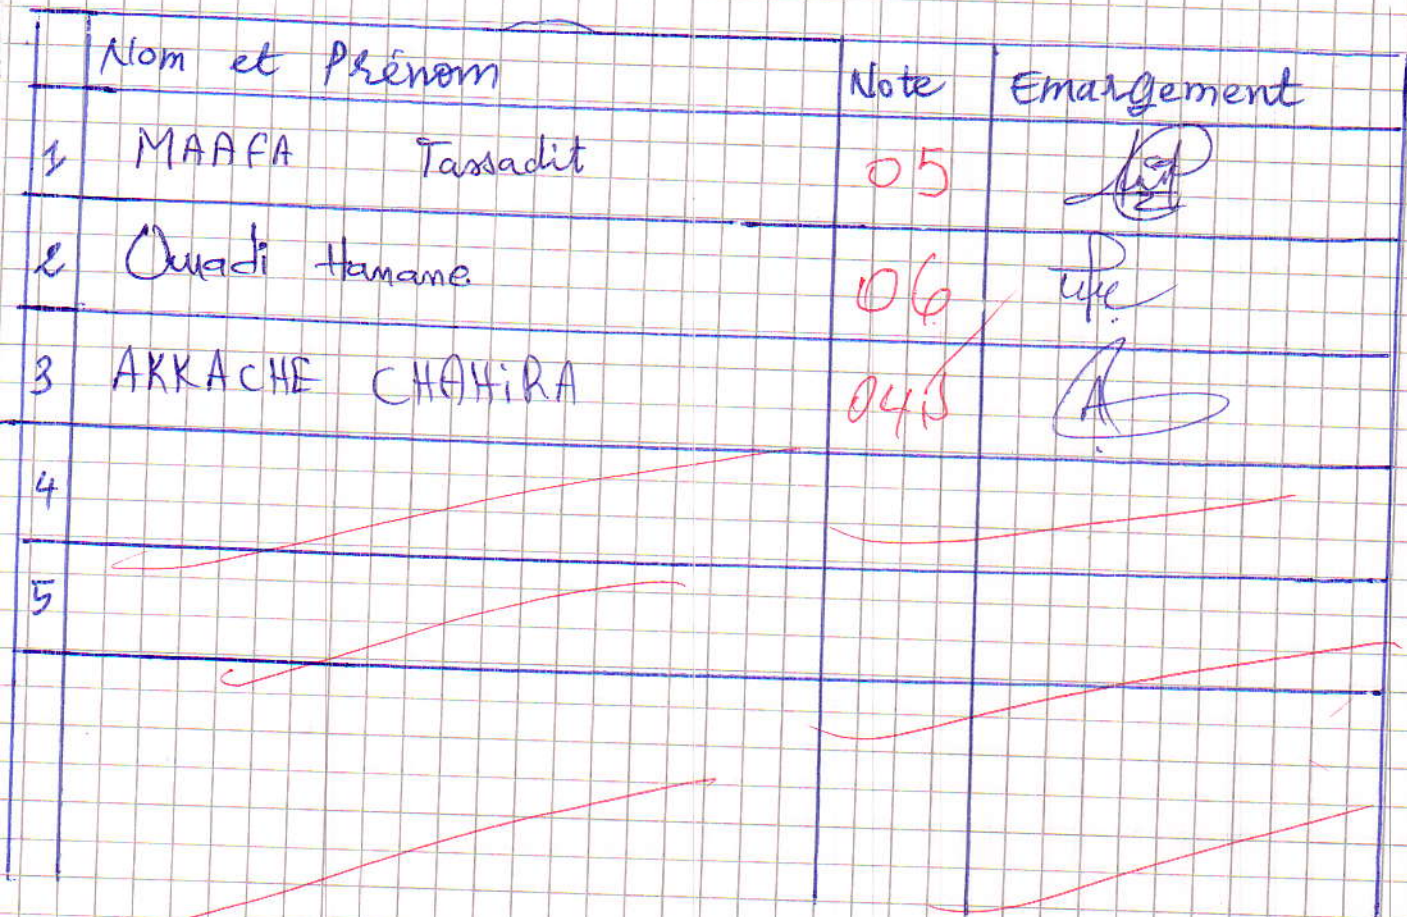 Nom et Prénom Note Emargement
1 MAAFA Tassadit 05
2 Ouadi Hanane 06
3 AKKACHE CHAHiRA 04,5
4
5